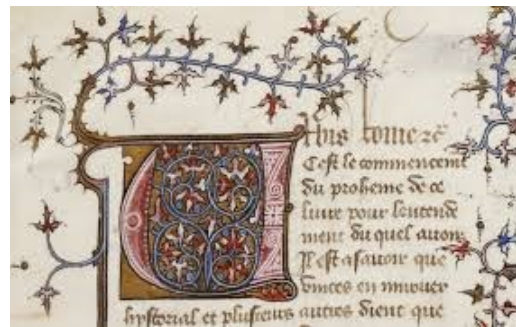 Cest le commencem
du proheme de ce
liure pour lentende
ment du quel auons
Il est asauoir que
vinces en mirouer
hystorial et plusieurs autres dient que